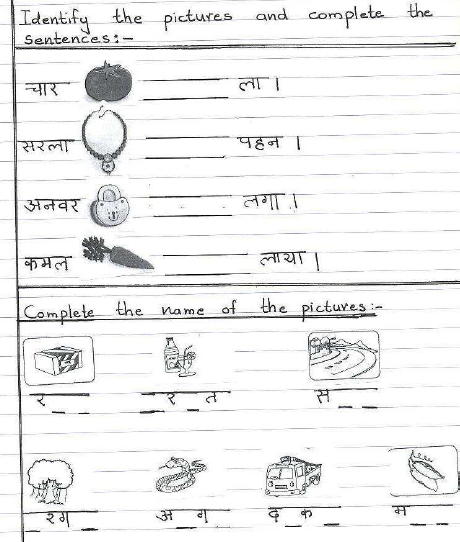 Identify the pictures and complete the
sentences:-
चार ______ ला।
सरला ______ पहन ।
अनवर ______ लगा ।
कमल ______ लाया |
Complete the name of the pictures:-
र _ _ _ र _ त स _ _
_ रग _ अ _ ग _ द _ क _ म _ _